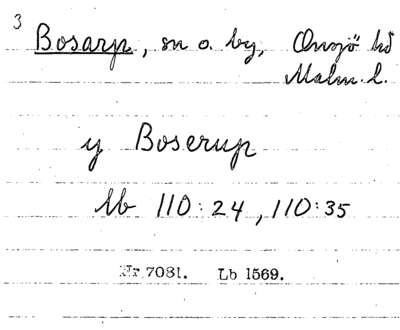 3
Bosarp, sn o. by, Onsjö hd
Malm. l.
y Boserup
Lb 110:24, 110:35
Nr 7081. Lb 1569.